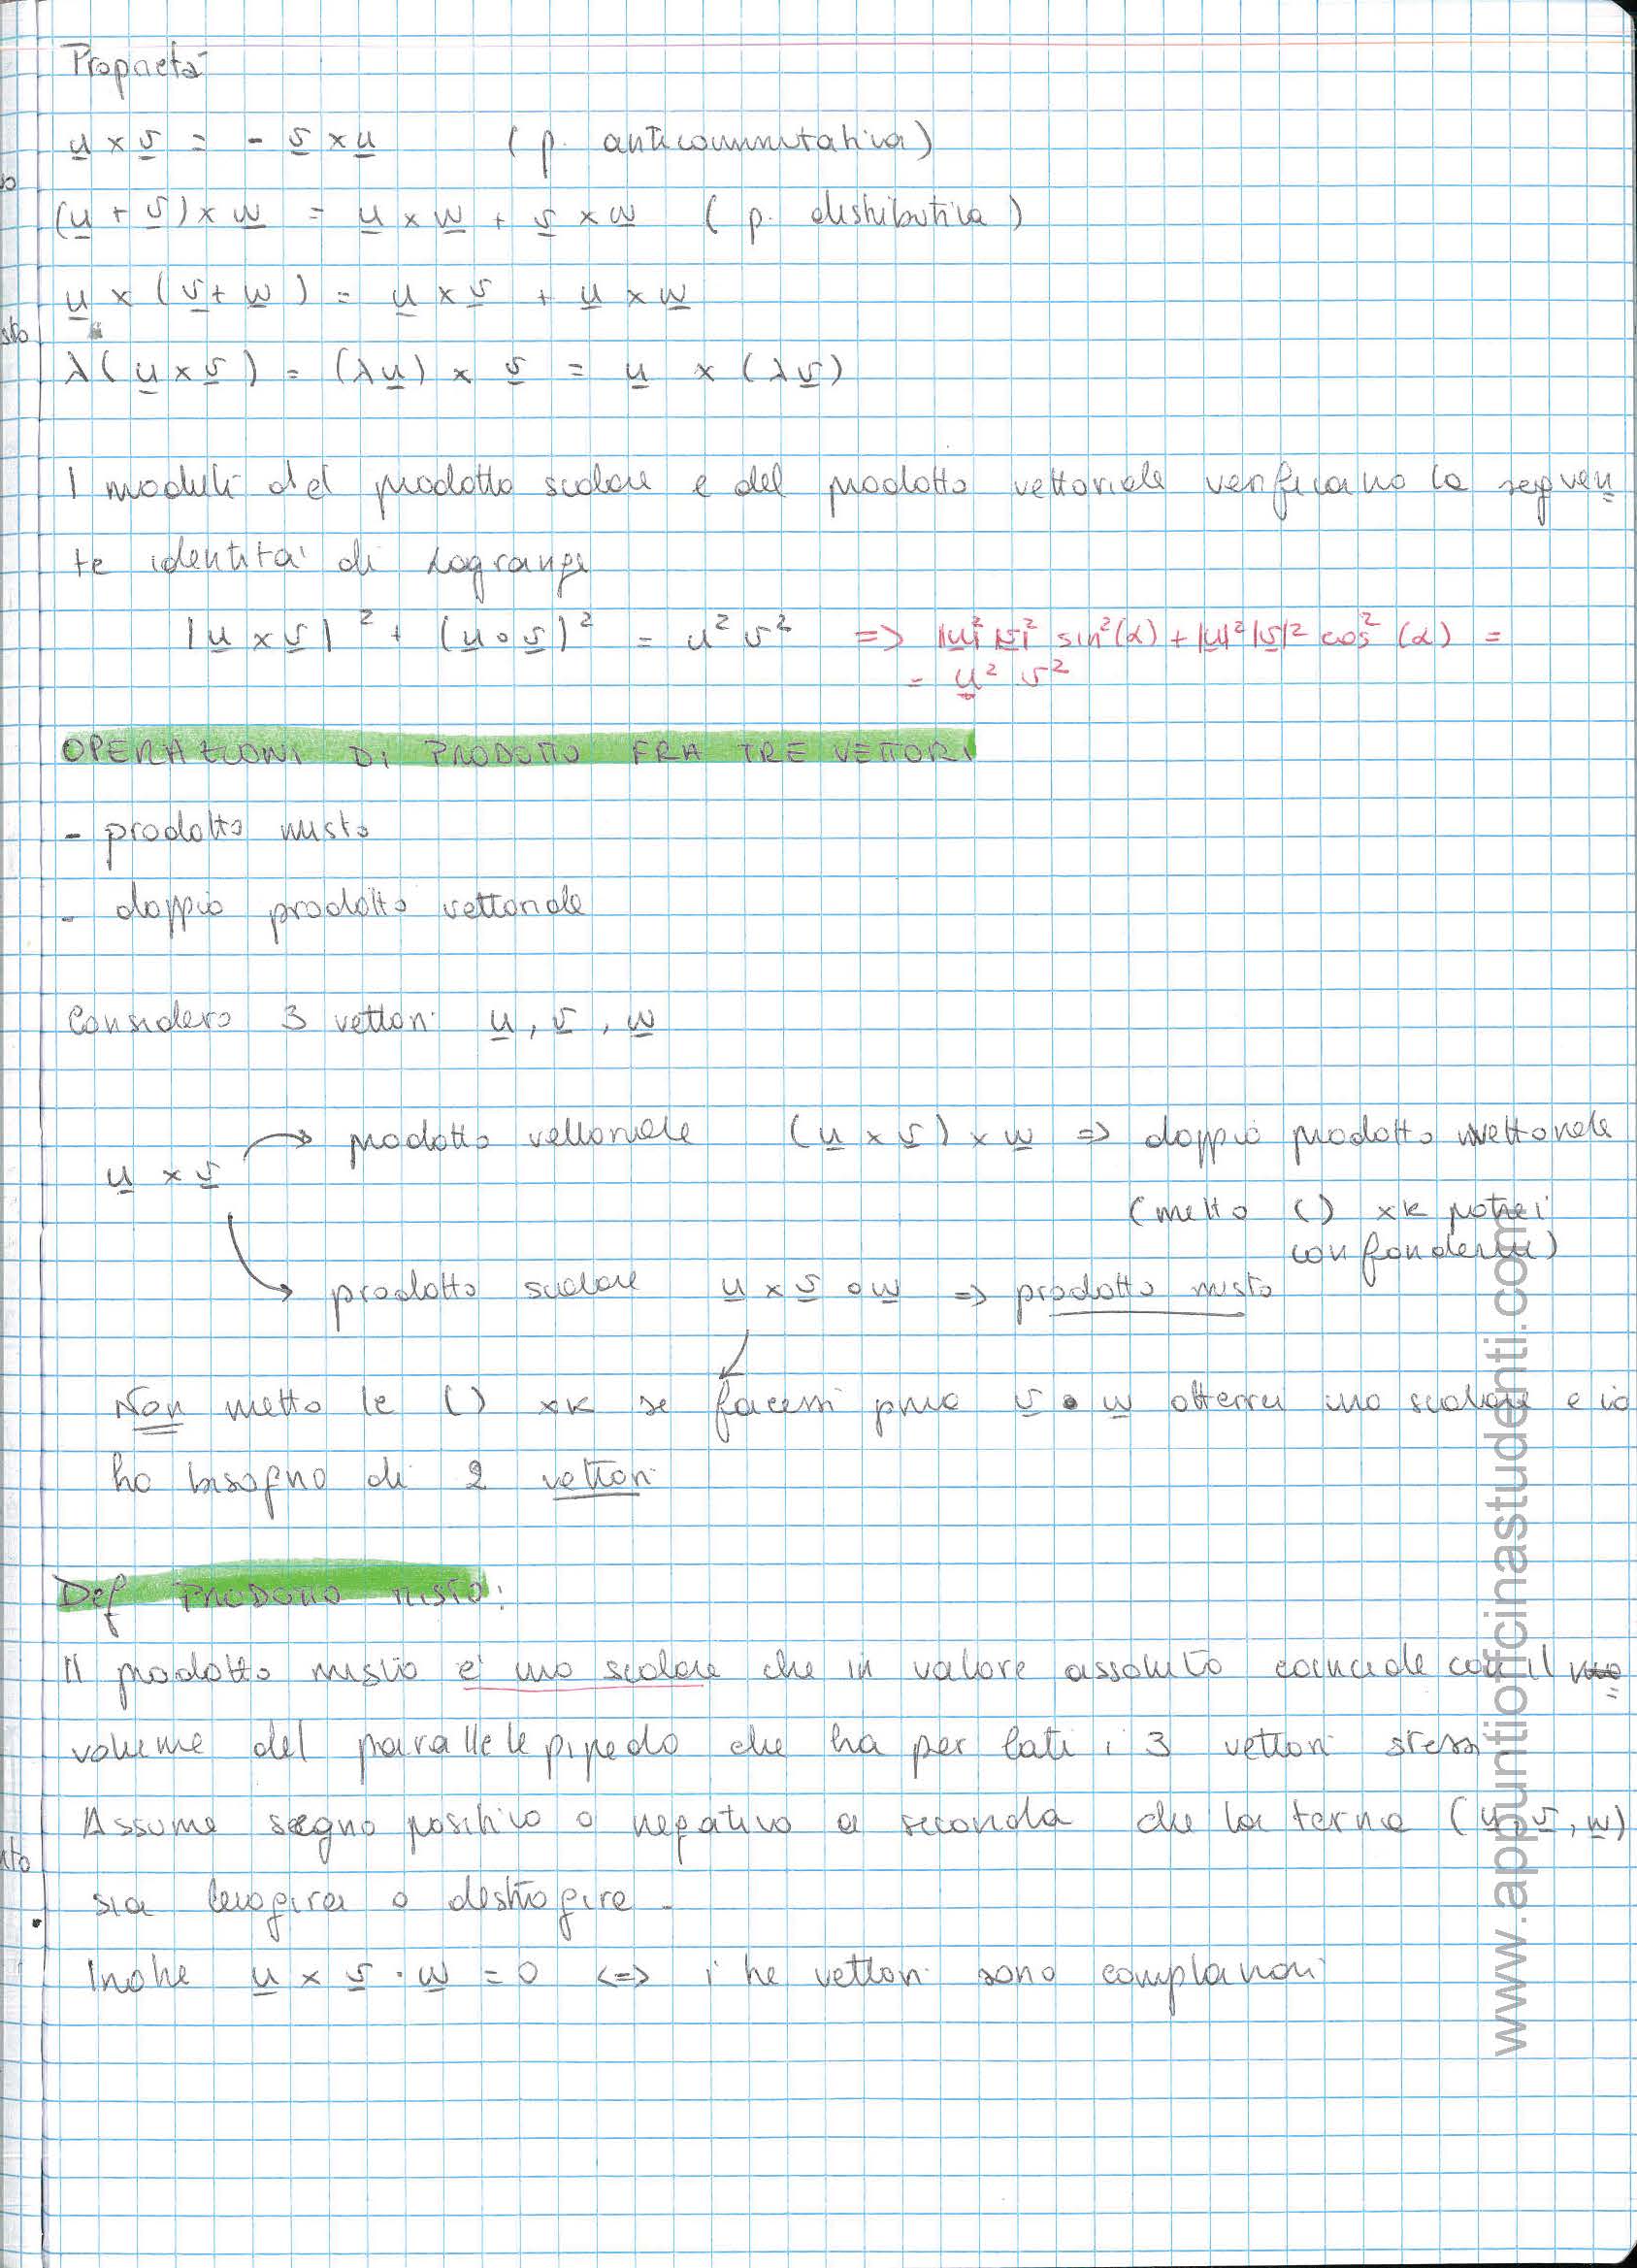 Proprietà
u × v = - v × u (p. anticommutativa)
(u + v) × w = u × w + v × w (p. distributiva)
u × (v + w) = u × v + u × w
λ(u × v) = (λu) × v = u × (λv)
I moduli del prodotto scalare e del prodotto vettoriale verificano la seguen
te identità di Lagrange
|u × v|² + (u ∘ v)² = u² v² => |u|² |v|² sin²(α) + |u|² |v|² cos²(α) =
= u² v²
OPERAZIONI DI PRODOTTO FRA TRE VETTORI
- prodotto misto
- doppio prodotto vettoriale
Considero 3 vettori u, v, w
prodotto vettoriale (u × v) × w => doppio prodotto vettoriale
u × v
(metto () xk potrei
confondermi)
prodotto scalare u × v ∘ w => prodotto misto
Non metto le () xk se facessi prima v • w otterrei uno scalare e io
ho bisogno di 2 vettori
Def PRODOTTO MISTO:
Il prodotto misto è uno scalare che in valore assoluto coincide con il
volume del parallelepipedo che ha per lati i 3 vettori stessi
Assume segno positivo o negativo a seconda che la terna (u, v, w)
sia levogira o destrogira.
Inoltre u × v · w = 0 <=> i tre vettori sono complanari
sto
www.appuntiofficinastudenti.com